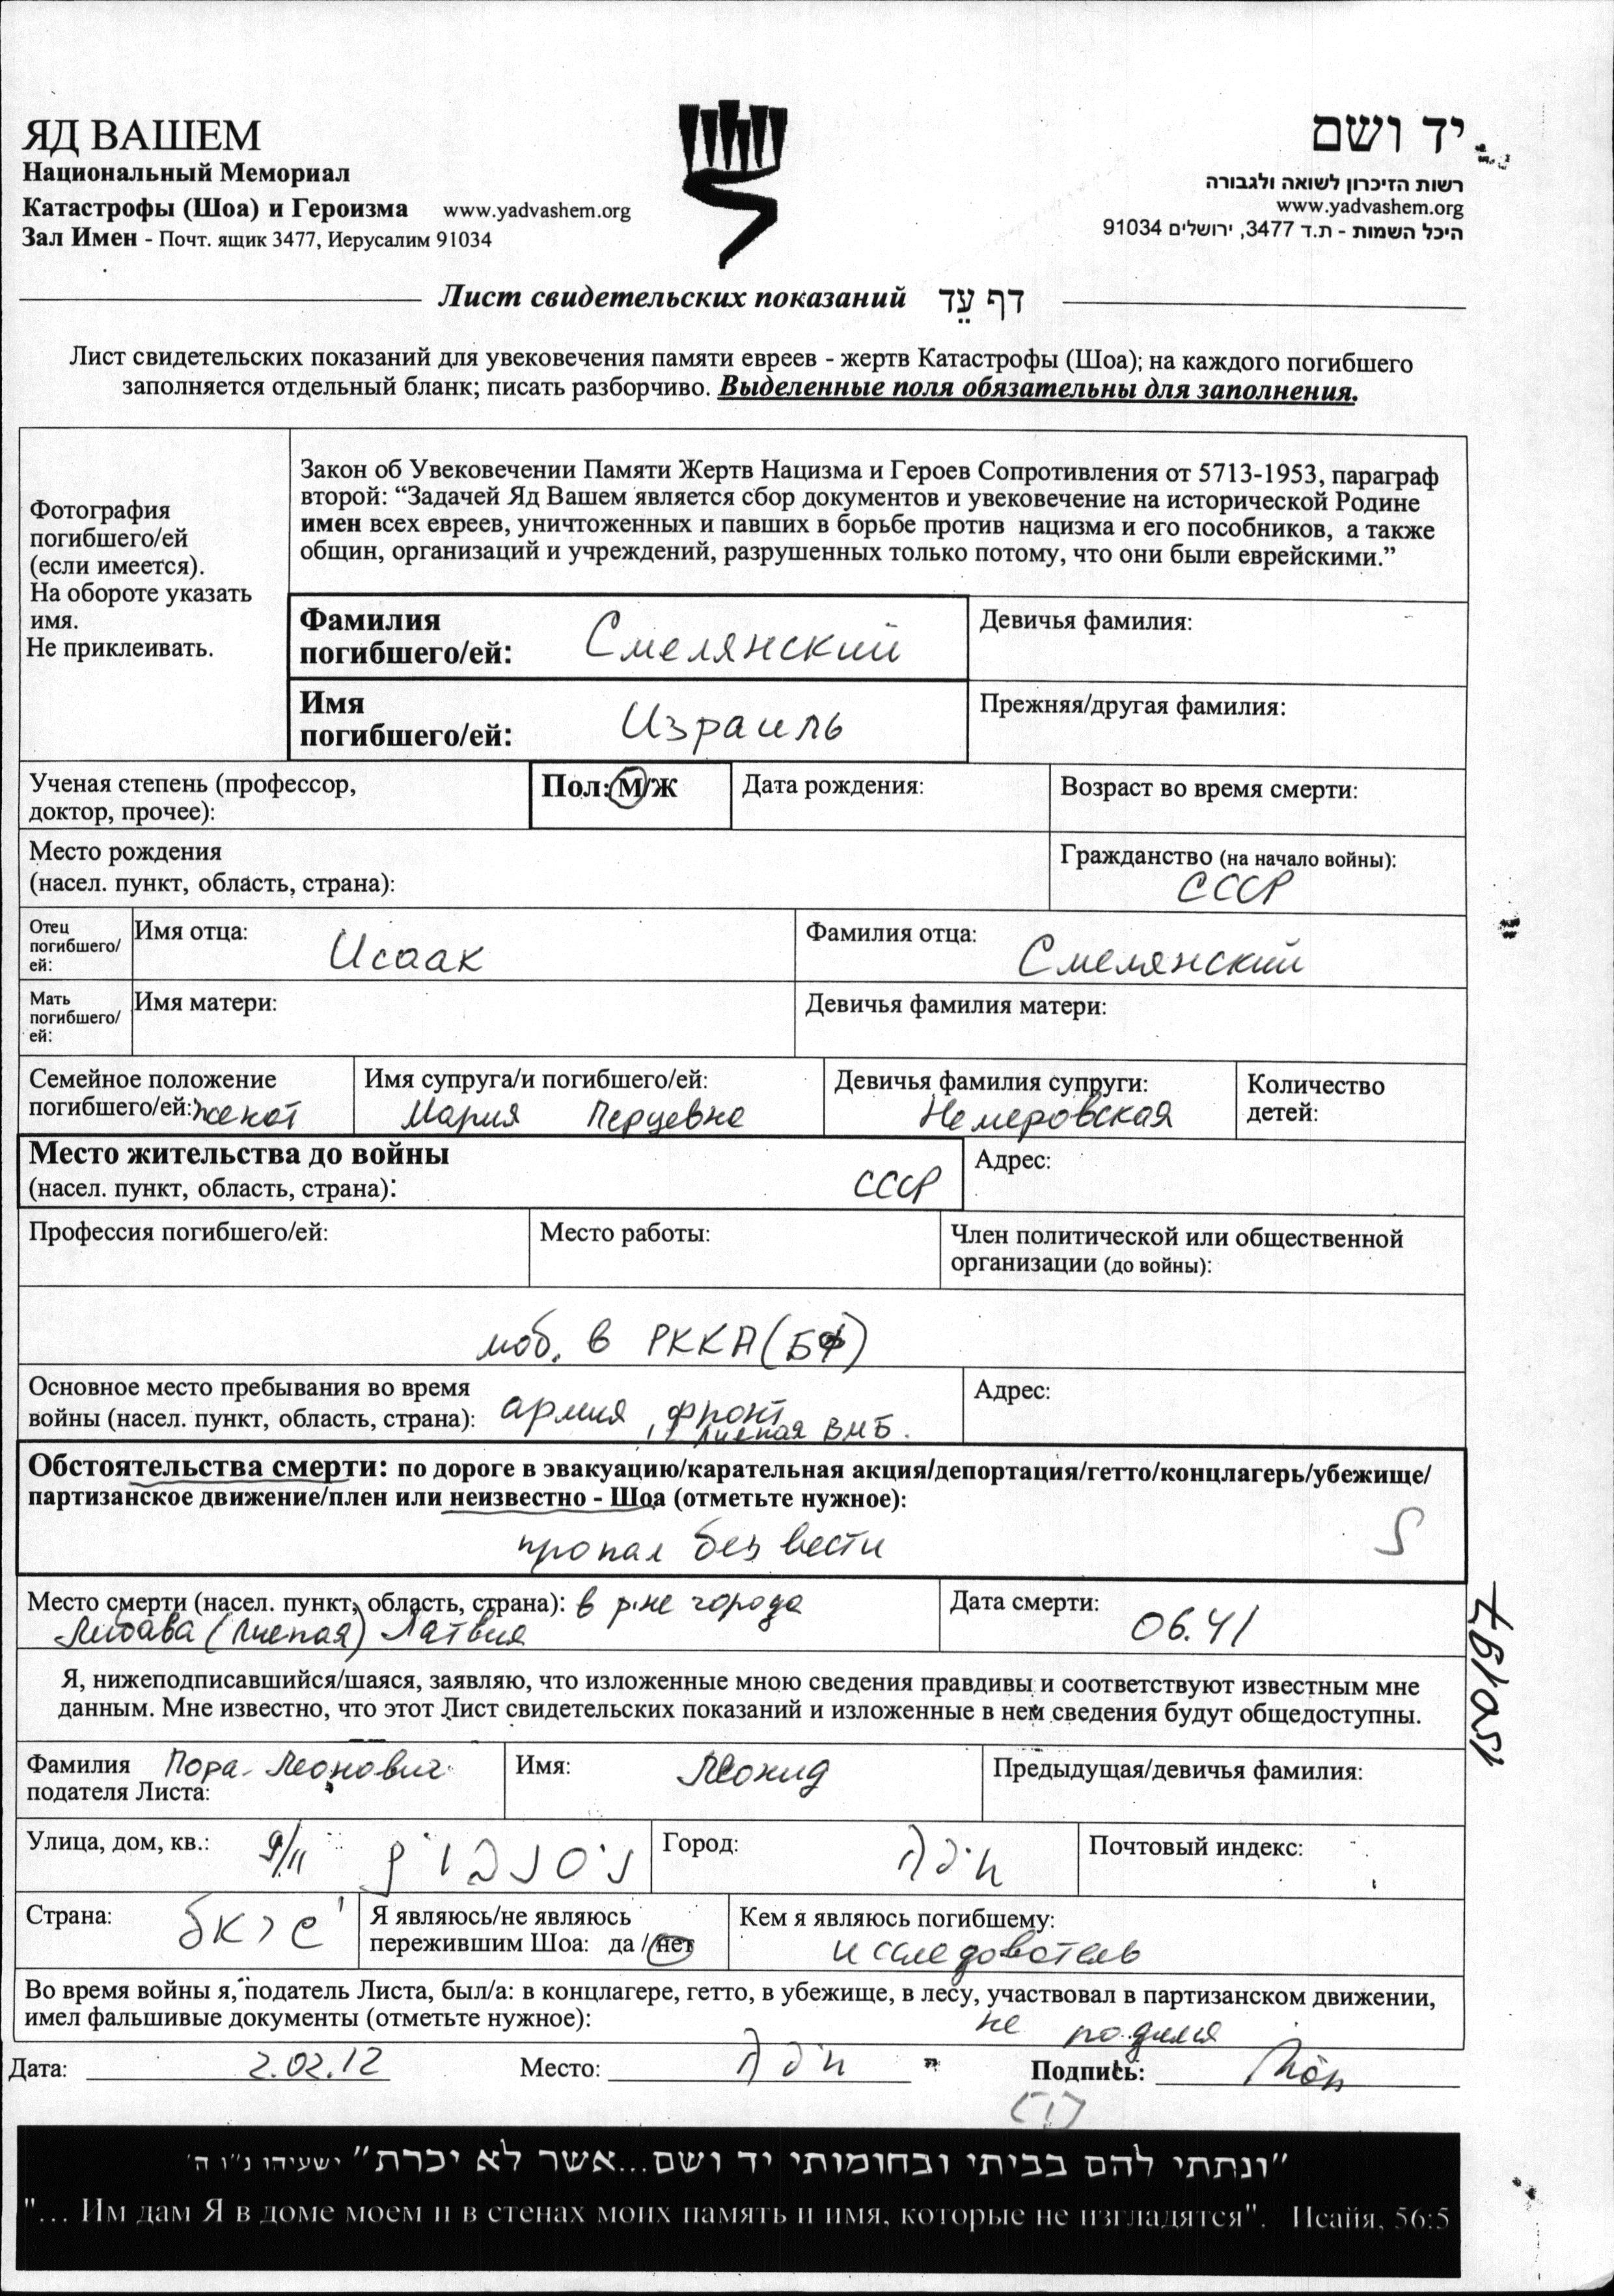 ЯД ВАШЕМ
Национальный Мемориал
Катастрофы (Шоа) и Героизма www.yadvashem.org
Зал Имен - Почт. ящик 3477, Иерусалим 91034
יד ושם
רשות הזיכרון לשואה ולגבורה
www.yadvashem.org
היכל השמות - ת.ד 3477, ירושלים 91034
Лист свидетельских показаний דף עֵד
Лист свидетельских показаний для увековечения памяти евреев - жертв Катастрофы (Шоа); на каждого погибшего
заполняется отдельный бланк; писать разборчиво. Выделенные поля обязательны для заполнения.
Фотография
погибшего/ей
(если имеется).
На обороте указать
имя.
Не приклеивать.
Закон об Увековечении Памяти Жертв Нацизма и Героев Сопротивления от 5713-1953, параграф
второй: “Задачей Яд Вашем является сбор документов и увековечение на исторической Родине
имен всех евреев, уничтоженных и павших в борьбе против нацизма и его пособников, а также
общин, организаций и учреждений, разрушенных только потому, что они были еврейскими.”
Фамилия
погибшего/ей: Смелянский
Девичья фамилия:
Имя
погибшего/ей: Израиль
Прежняя/другая фамилия:
Ученая степень (профессор,
доктор, прочее):
Пол: М/Ж
Дата рождения:
Возраст во время смерти:
Место рождения
(насел. пункт, область, страна):
Гражданство (на начало войны):
СССР
Отец
погибшего/
ей:
Имя отца: Исаак
Фамилия отца: Смелянский
Мать
погибшего/
ей:
Имя матери:
Девичья фамилия матери:
Семейное положение
погибшего/ей: женат
Имя супруга/и погибшего/ей:
Мария Перцевна
Девичья фамилия супруги:
Немеровская
Количество
детей:
Место жительства до войны
(насел. пункт, область, страна): СССР
Адрес:
Профессия погибшего/ей:
Место работы:
Член политической или общественной
организации (до войны):
моб. в РККА (БФ)
Основное место пребывания во время
войны (насел. пункт, область, страна): армия, фронт
Лиепая ВМБ.
Адрес:
Обстоятельства смерти: по дороге в эвакуацию/карательная акция/депортация/гетто/концлагерь/убежище/
партизанское движение/плен или неизвестно - Шоа (отметьте нужное):
пропал без вести
Место смерти (насел. пункт, область, страна): в р-не города
Либава (Лиепая) Латвия
Дата смерти: 06.41
Я, нижеподписавшийся/шаяся, заявляю, что изложенные мною сведения правдивы и соответствуют известным мне
данным. Мне известно, что этот Лист свидетельских показаний и изложенные в нем сведения будут общедоступны.
Фамилия
подателя Листа: Пора-Леонович
Имя: Леонид
Предыдущая/девичья фамилия:
Улица, дом, кв.: 9/11
Город: חיפה
Почтовый индекс:
Страна: ישראל
Я являюсь/не являюсь
пережившим Шоа: да / нет
Кем я являюсь погибшему:
исследователь
Во время войны я, податель Листа, был/а: в концлагере, гетто, в убежище, в лесу, участвовал в партизанском движении,
имел фальшивые документы (отметьте нужное): не родился
Дата: 2.02.12
Место: חיפה
Подпись:
"ונתתי להם בביתי ובחומותי יד ושם...אשר לא יכרת" ישעיהו נ"ו ה'
"... Им дам Я в доме моем и в стенах моих память и имя, которые не изгладятся". Исайя, 56:5